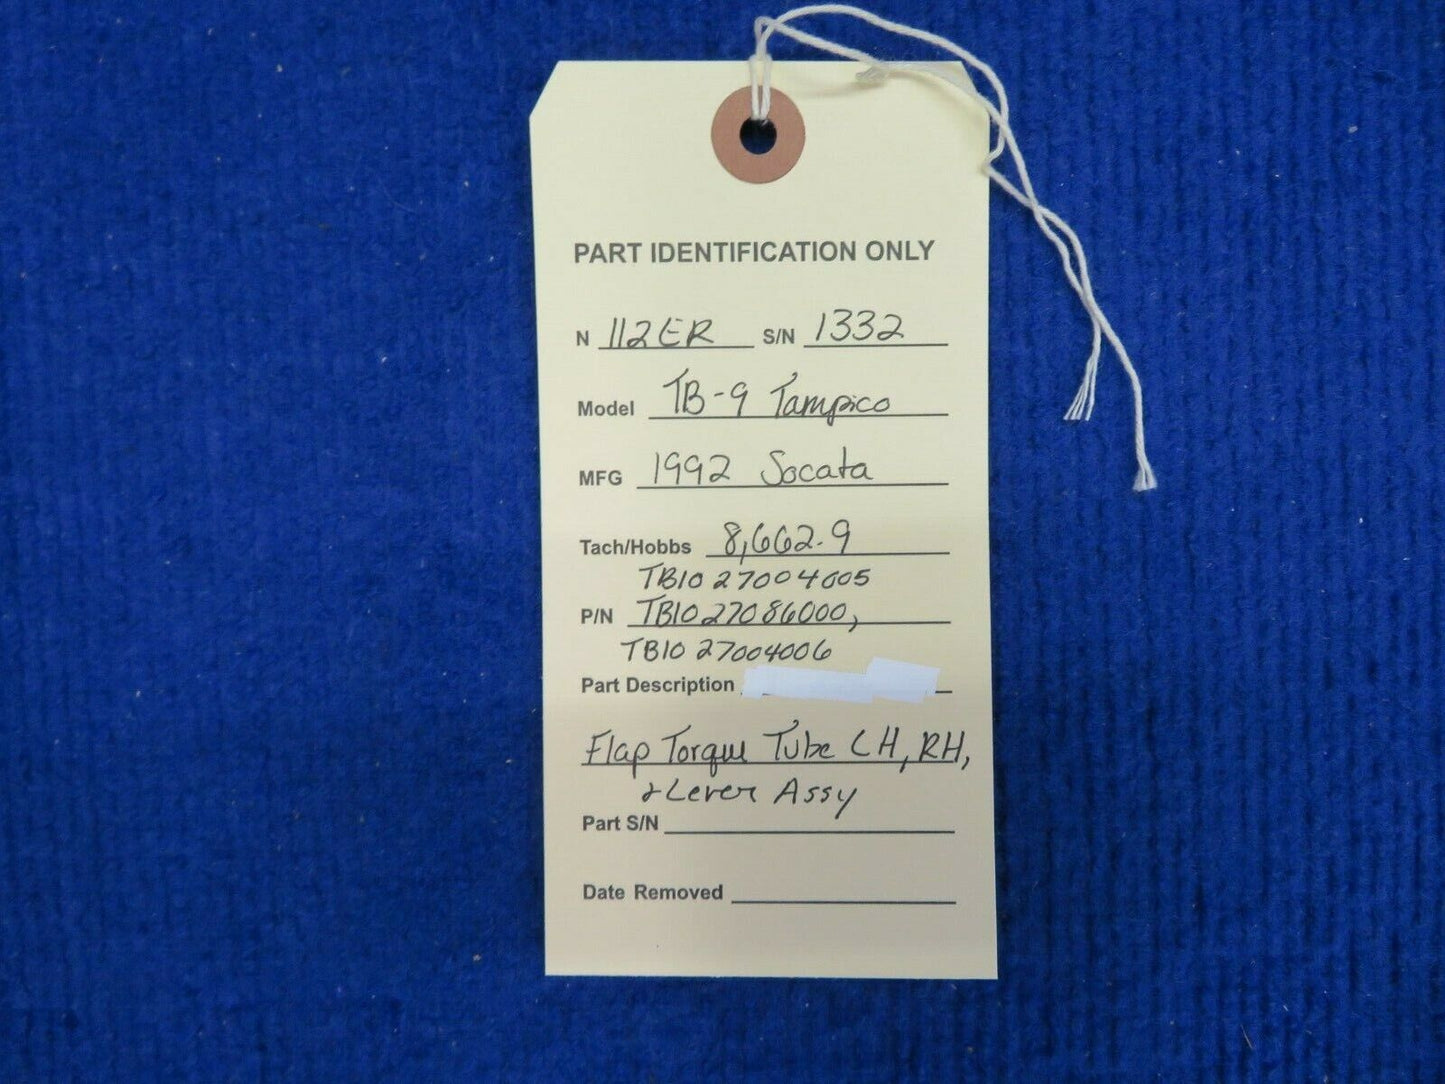 PART IDENTIFICATION ONLY
N 112ER S/N 1332
Model TB-9 Tampico
MFG 1992 Socata
Tach/Hobbs 8,662.9
TB10 27004005
P/N TB10 27086000,
TB10 27004006
Part Description
Flap Torque Tube LH, RH,
& Lever Assy
Part S/N
Date Removed